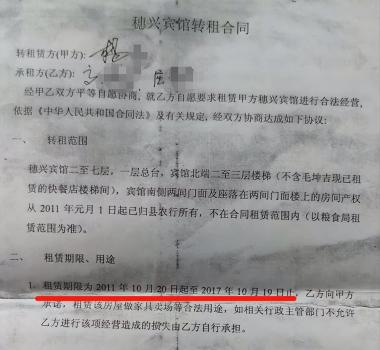 穗兴宾馆转租合同
转租赁方(甲方):
承租方(乙方):
经甲乙双方平等自愿协商,就乙方自愿要求租赁甲方穗兴宾馆进行合法经营,
依据《中华人民共和国合同法》及有关规定,经双方协商达成如下协议:
一、 转租范围
穗兴宾馆二至七层,一层总台,宾馆北端二至三层楼梯(不含毛坤吉现已租
赁的快餐店楼梯间),宾馆南侧两间门面及座落在两间门面楼上的房间产权
从 2011 年元月 1 日起已归县农行所有,不在合同租赁范围内(以粮食局租
赁范围为准)。
二、 租赁期限、用途
1. 租赁期限为 2011 年 10 月 20 日起至 2017 年 10 月 19 日止,乙方向甲方
承诺,租赁该房屋做家具卖场等合法用途,如相关行政主管部门不允许
乙方进行该项经营造成的损失由乙方自行承担。